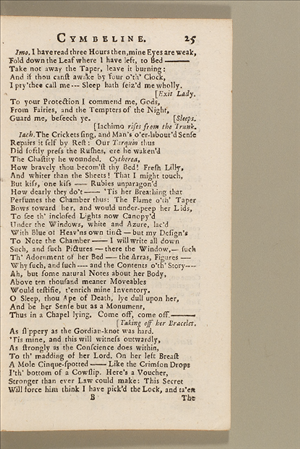 CYMBELINE. 25
Imo. I have read three Hours then, mine Eyes are weak,
Fold down the Leaf where I have left, to Bed ——
Take not away the Taper, leave it burning:
And if thou canst awake by four o'th' Clock,
I pry'thee call me --- Sleep hath seiz'd me wholly.
[Exit Lady.
To your Protection I commend me, Gods,
From Fairies, and the Tempters of the Night,
Guard me, beseech ye. [Sleeps.
[Iachimo rises from the Trunk.
Iach. The Crickets sing, and Man's o'er-labour'd Sense
Repairs it self by Rest: Our Tarquin thus
Did softly press the Rushes, ere he waken'd
The Chastity he wounded. Cytherea,
How bravely thou becom'st thy Bed! Fresh Lilly,
And whiter than the Sheets! That I might touch,
But kiss, one kiss —— Rubies unparagon'd
How dearly they do't —— 'Tis her Breathing that
Perfumes the Chamber thus: The Flame o'th' Taper
Bows toward her, and would under-peep her Lids,
To see th' inclosed Lights now Canopy'd
Under the Windows, White and Azure, lac'd
With Blue of Heav'ns own tinct — but my Design's
To Note the Chamber —— I will write all down
Such, and such Pictures — there the Window, — such
Th' Adornment of her Bed — the Arras, Figures —
Why such, and such --- and the Contents o'th' Story --
Ah, but some natural Notes about her Body,
Above ten thousand meaner Moveables
Would testifie, t'enrich mine Inventory.
O Sleep, thou Ape of Death, lye dull upon her,
And be her Sense but as a Monument,
Thus in a Chapel lying. Come off, come off. ——
[Taking off her Bracelet.
As slippery as the Gordian-knot was hard.
'Tis mine, and this will witness outwardly,
As strongly as the Conscience does within,
To th' madding of her Lord. On her left Breast
A Mole Cinque-spotted —— Like the Crimson Drops
I'th' bottom of a Cowslip. Here's a Voucher,
Stronger than ever Law could make: This Secret
Will force him think I have pick'd the Lock, and ta'en
B The